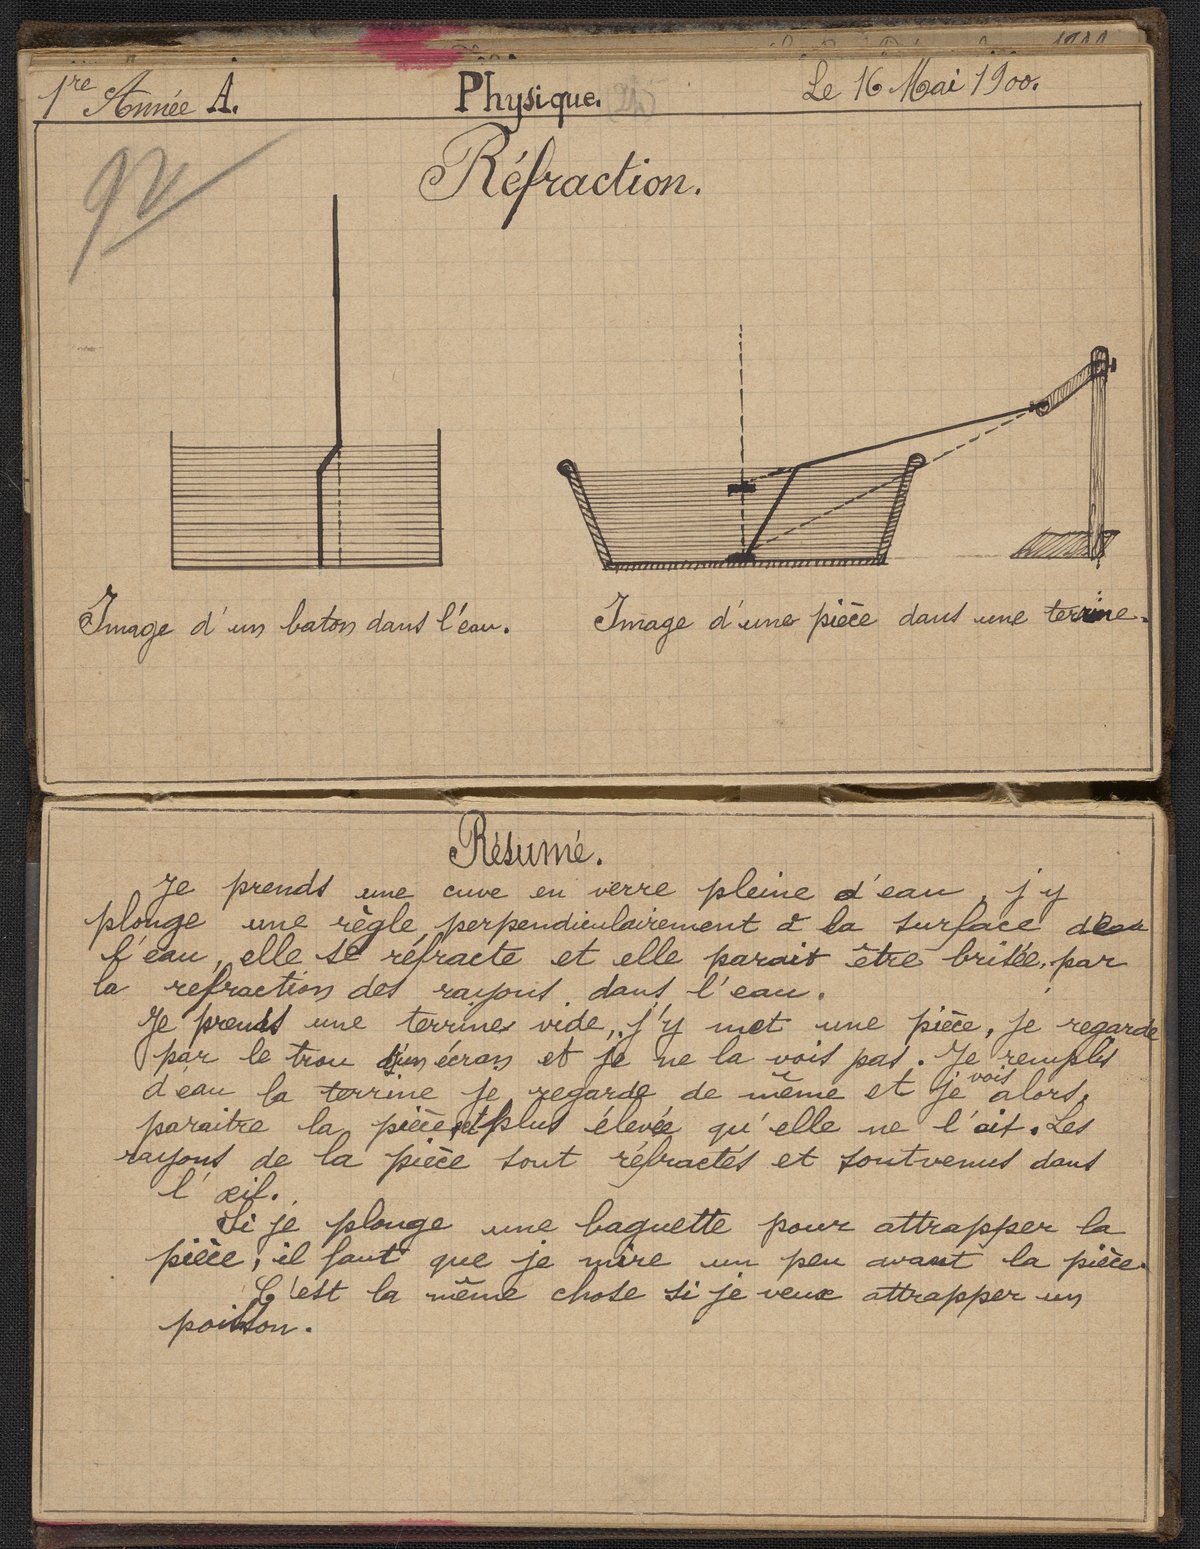 1re Année A.
Physique.
Le 16 Mai 1900.
Réfraction.
Image d'un baton dans l'eau.
Image d'une pièce dans une terrine.
Résumé.
Je prends une cuve en verre pleine d'eau, j'y
plonge une règle perpendiculairement à la surface de
l'eau, elle se réfracte et elle parait être brisée, par
la refraction des rayons dans l'eau.
Je prends une terrine vide, j'y met une pièce, je regarde
par le trou d'un écran et je ne la vois pas. Je remplis
d'eau la terrine je regarde de même et je vois alors,
paraitre la pièce plus élevée qu'elle ne l'ait. Les
rayons de la pièce sont réfractés et sont venus dans
l'œil.
Si je plonge une baguette pour attrapper la
pièce, il faut que je mire un peu avant la pièce.
C'est la même chose si je veux attrapper un
poisson.